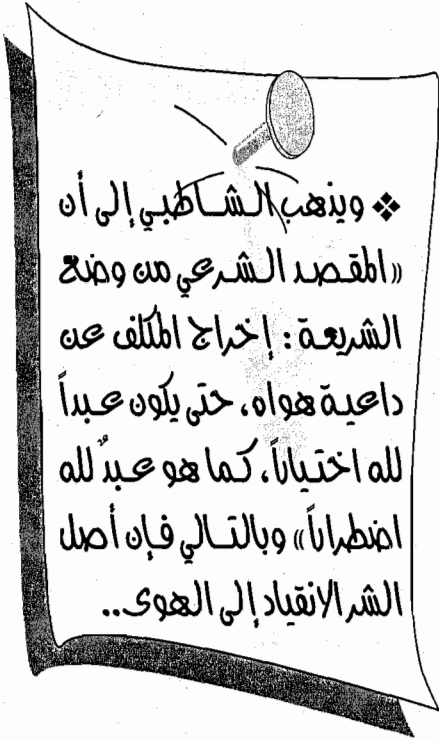 ❖ ويذهب الشاطبي إلى أن
«المقصد الشرعي من وضع
الشريعة: إخراج المكلف عن
داعية هواه، حتى يكون عبداً
لله اختياراً، كما هو عبدٌ لله
اضطراراً» وبالتالي فإن أصل
الشر الانقياد إلى الهوى..